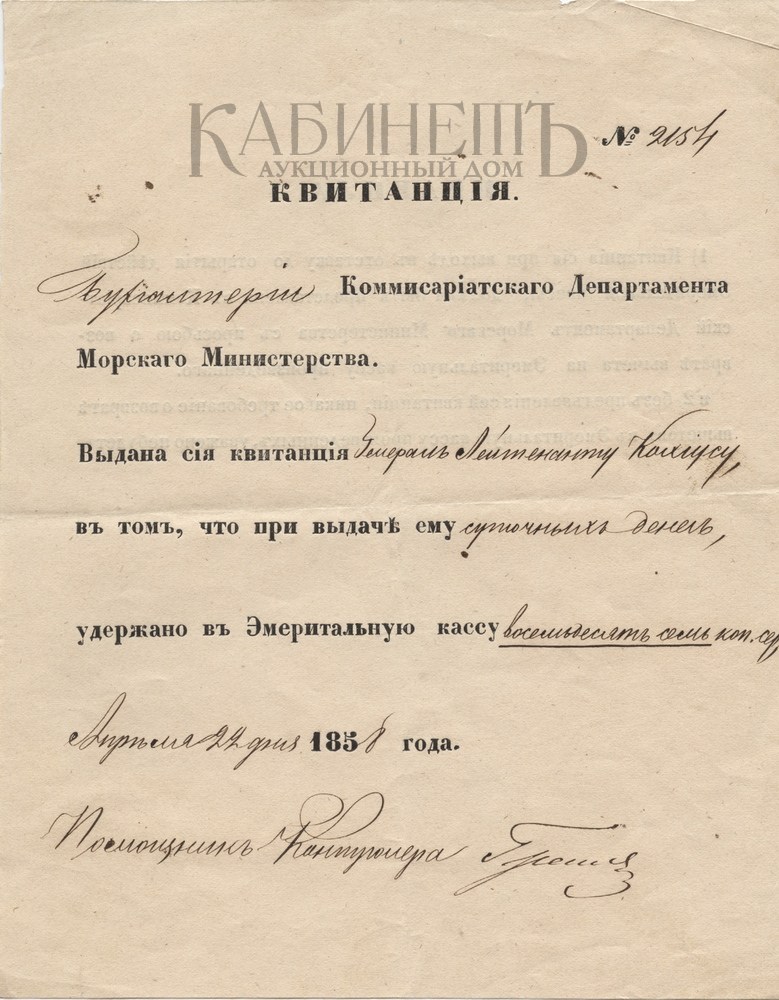 КАБИНЕТЪ
АУКЦИОННЫЙ ДОМ
№ 2154
КВИТАНЦІЯ.
Бухгалтеріи Коммисаріатскаго Департамента
Морскаго Министерства.
Выдана сія квитанція Генералъ Лейтенанту
въ томъ, что при выдачѣ ему суточныхъ денегъ,
удержано въ Эмеритальную кассу восемьдесятъ семь коп. сер.
Апрѣля 22 дня 1858 года.
Помощникъ Контролера